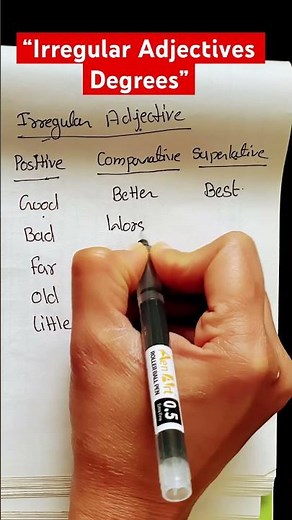 “Irregular Adjectives
Degrees”
Irregular Adjective
Positive Comparative Superlative
Good Better Best.
Bad Wors
Far
Old
Little
Pen Art
ROLLER BALL PEN
0.5